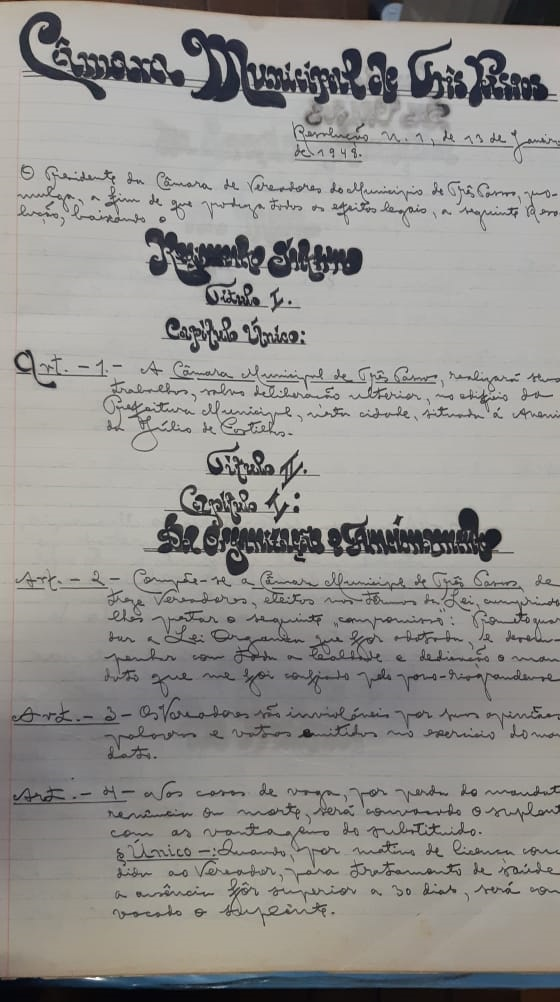 Câmara Municipal de Três Passos
Resolução n. 1, de 13 de Janeiro
de 1948.
O Presidente da Câmara de Vereadores do Municipio de Três Passos, pro-
mulga, a fim de que produza todos os efeitos legais, a seguinte Reso-
lução, baixando o
Regimento Interno
Titulo I.
Capitulo Único:
Art. - 1. - A Câmara Municipal de Três Passos, realizará seus
trabalhos, salvo deliberação ulterior, no edificio da
Prefeitura Municipal, nesta cidade, situada á Aveni
da Júlio de Castilho.
Titulo II.
Capitulo I:
Da Organização e Funcionamento
Art. - 2 - Compõe-se a Câmara Municipal de Três Passos, de
treze Vereadores, eleitos nos termos da Lei, cumprindo
lhes prestar o seguinte "compromisso": Prometo guar
dar a Lei Organica que fôr adotada, e desem
penhar com toda a lealdade e dedicação o man
dato que me foi confiado pelo povo riograndense
Art. - 3 - Os Vereadores são invioláveis por suas opiniões
palavras e votos emitidos no exercicio do man
dato.
Art. - 4 - Nos casos de vaga, por perda do mandat
renúncia ou morte, será convocado o suplent
com as vantagens do substituido.
§ Único -: Quando, por motivo de licença conce
dida ao Vereador, para tratamento de saúde
a ausência fôr superior a 30 dias, será con
vocado o suplente.